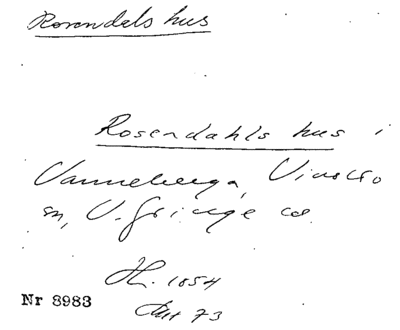 Rosendals hus
Rosendahls hus i
Vanneberga, Vinslövs
sn, V. Göinge
HL. 1854
Nr 8983
73